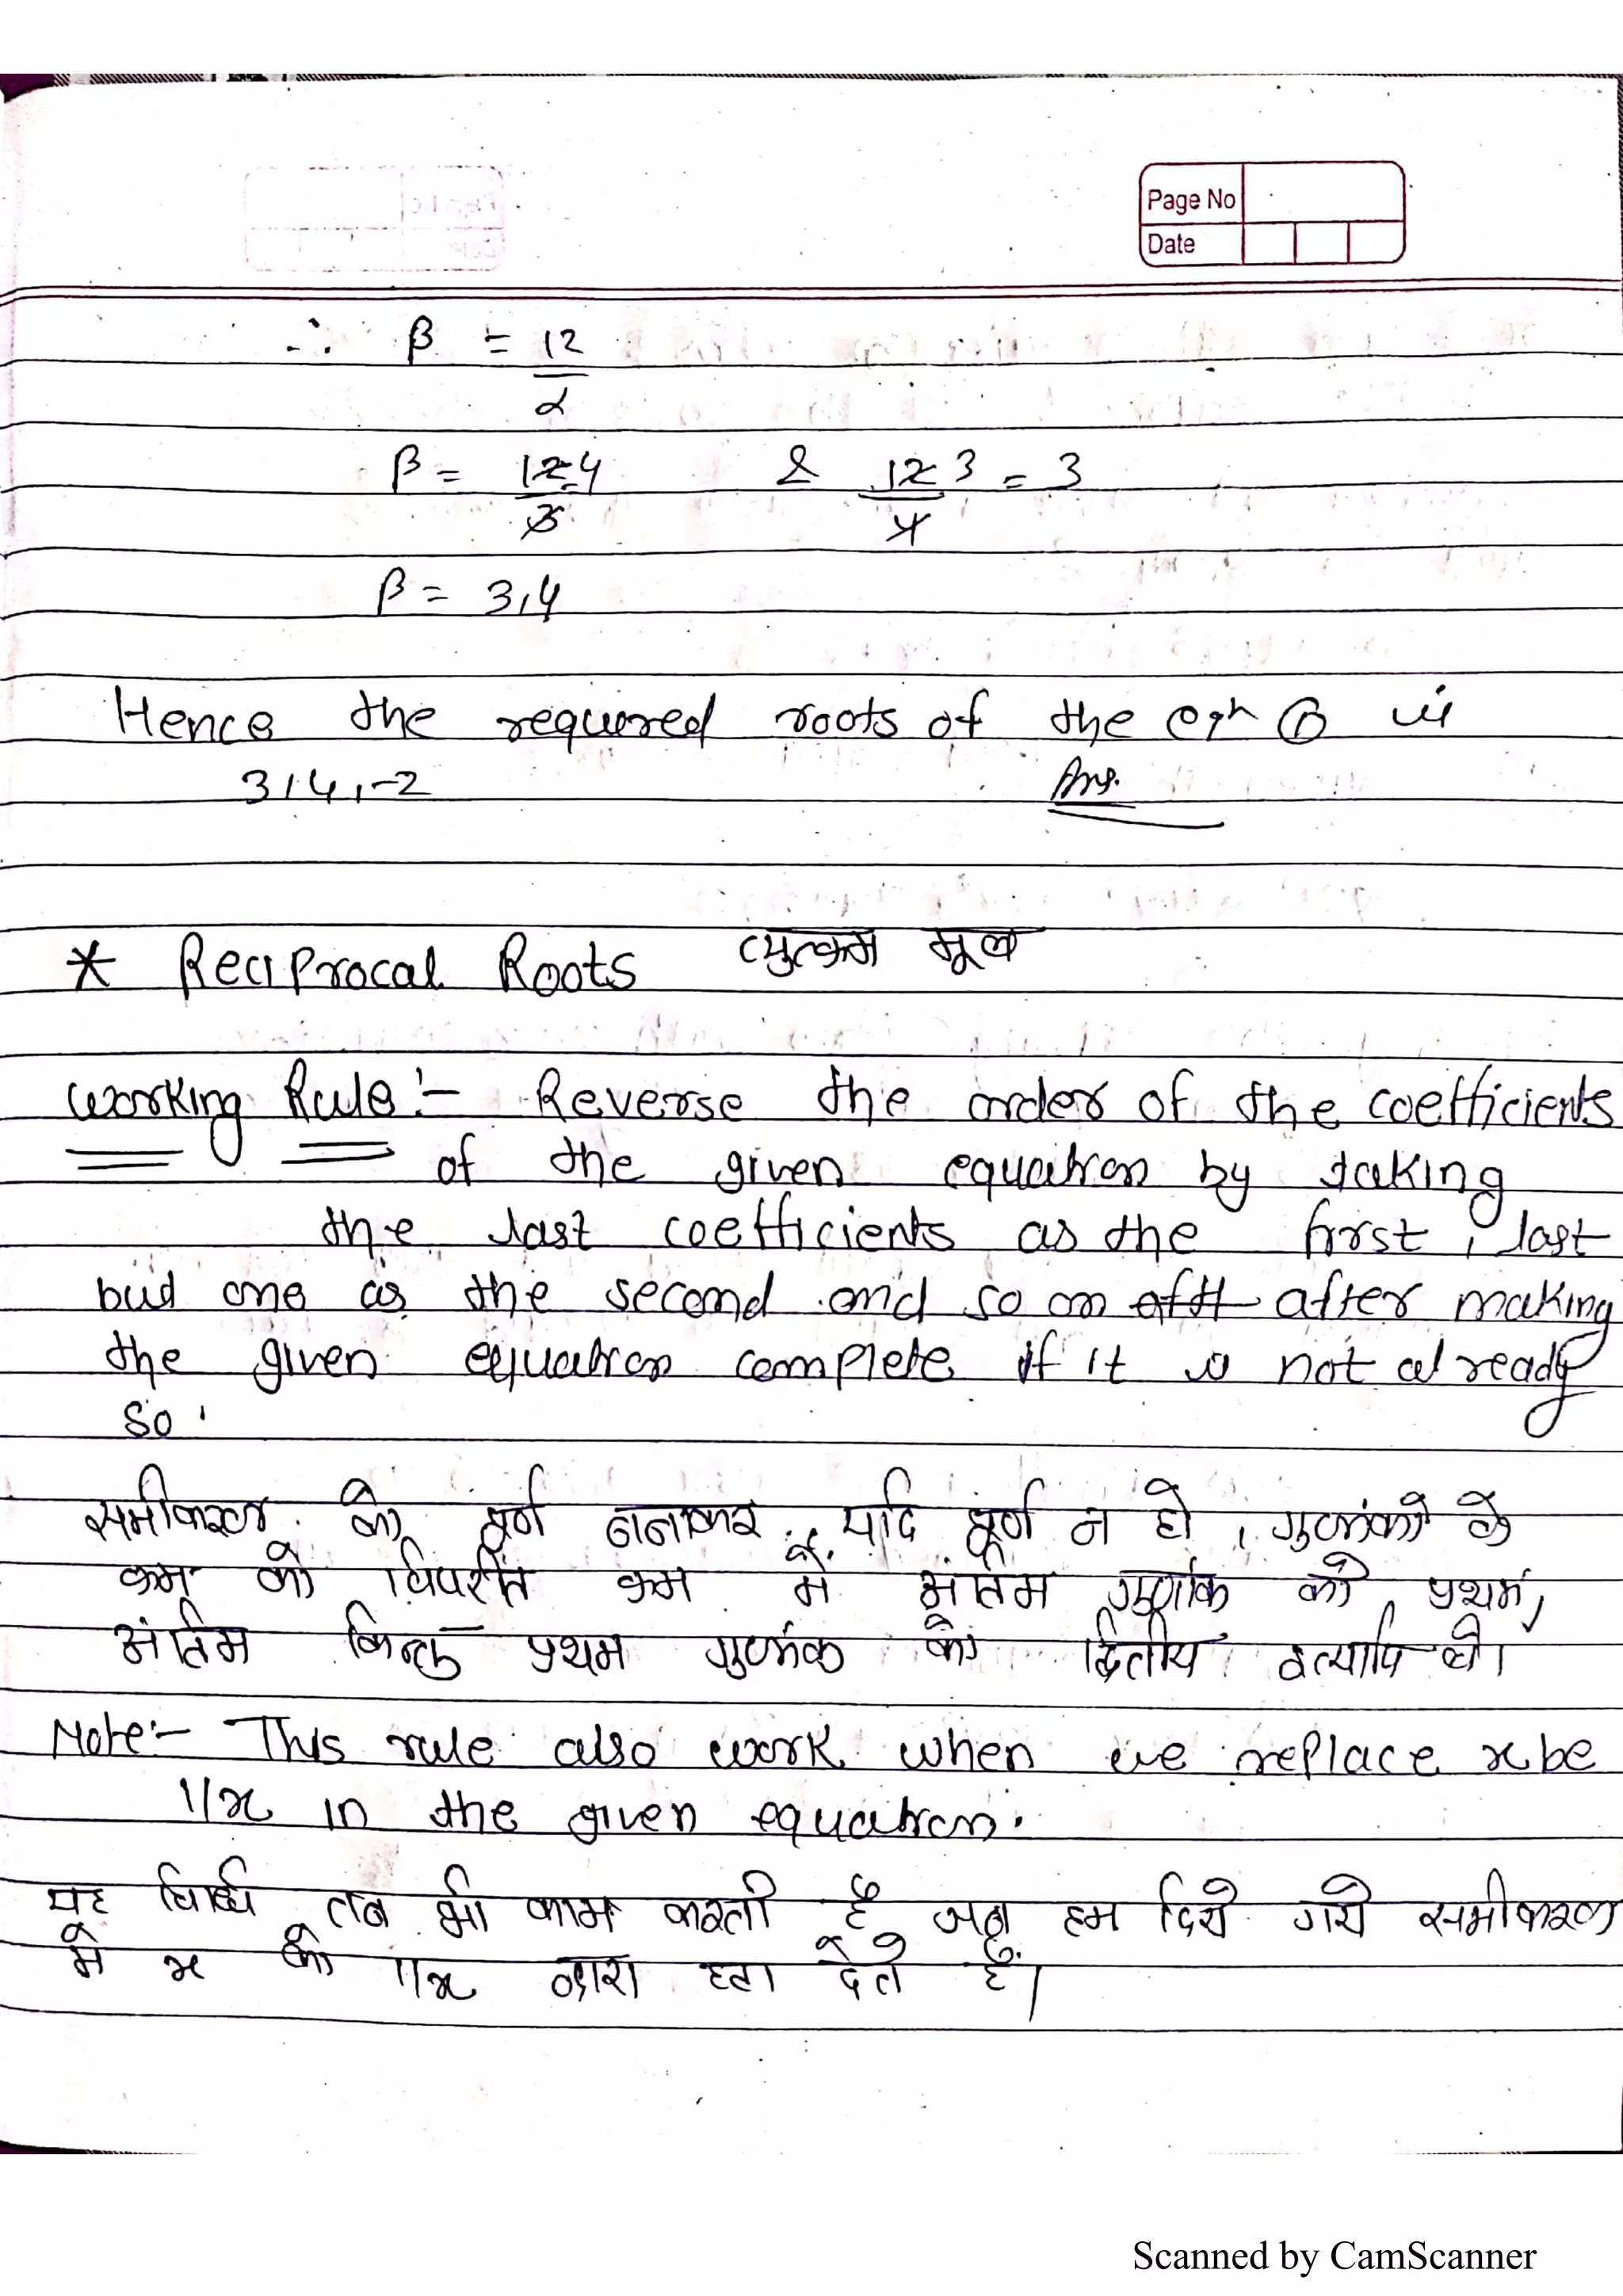 Page No
Date
∴ β = 12
α
β = 12 4 & 12 3 = 3
3 4
β = 3,4
Hence the required roots of the eqn ① is
3,4,-2 Ans.
* Reciprocal Roots व्युत्क्रम मूल
Working Rule:- Reverse the order of the coefficients
of the given equation by taking
the last coefficients as the first, last
but one as the second and so on after making
the given equation complete if it is not already
so.
समीकरण को पूर्ण बनाकर यदि पूर्ण न हो, गुणांकों के
क्रम को विपरीत क्रम में अंतिम गुणांक को प्रथम,
अंतिम किन्तु प्रथम गुणांक को द्वितीय
Note:- This rule also work when we replace x be
1/x in the given equation.
यह विधि तब भी काम करती है जब हम दिये गये समीकरण
मे x को 1/x द्वारा हटा देते हैं।
Scanned by CamScanner